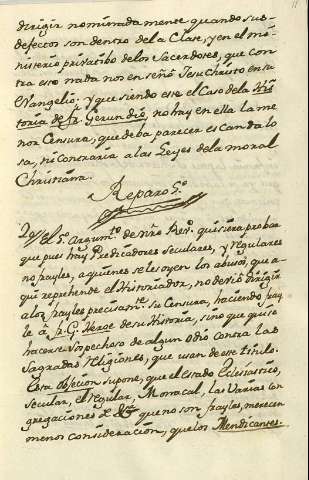 dirigir nominadamente quando sus
defectos son dentro de la Clase, y en el mi-
nisterio privatibo de los Sacerdotes, que con
tra esto nada nos enseñó Jesu Christo en su
Evangelio; y que siendo ese el Caso de la His
toria de fr. Gerundio, no hay en ella la me
nor Censura, que deba parecer escandalo
sa, ni contraria a las Leyes de la moral
Christiana.
Reparo 5.º
El 5.º Argum.to de nr̃o Rev. quisiera probar
que pues hay Predicadores seculares, y Regulares
no frayles, a quienes se les oyen los abusos, que a-
quí reprehende el Historiador, no debió dirigir
a los frayles precisam.te su Censura, haciendo fray
le á fr. G. Heroe de su Historia, sino que quiso
hacerse sospechoso de algun odio contra las
Sagradas Religiones, que usan de ese titulo.
Esta objecion supone, que el estado Eclesiastico,
secular, el Regular, Monacal, las Varias con
gregaciones &c. que no son frayles, merecen
menos consideración, que los Mendicantes.